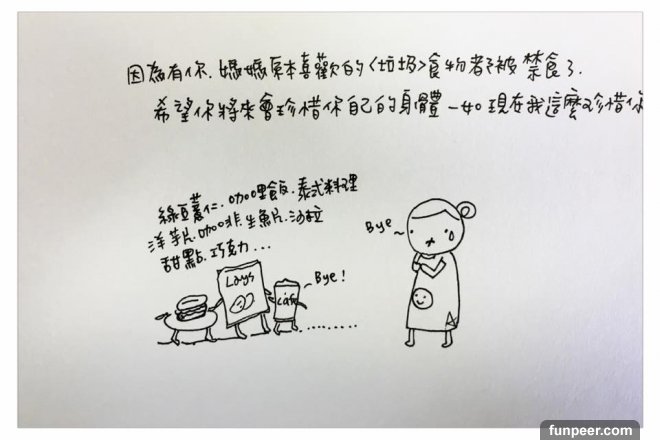 因為有你，媽媽原本喜歡的〈垃圾〉食物者都被禁食了.
希望你將來會珍惜你自己的身體一如現在我這麼珍惜你
綠豆薏仁.咖哩飯.泰式料理
洋芋片.咖啡.生魚片.沙拉
甜點.巧克力...
Bye
Lays
café
Bye!
funpeer.com